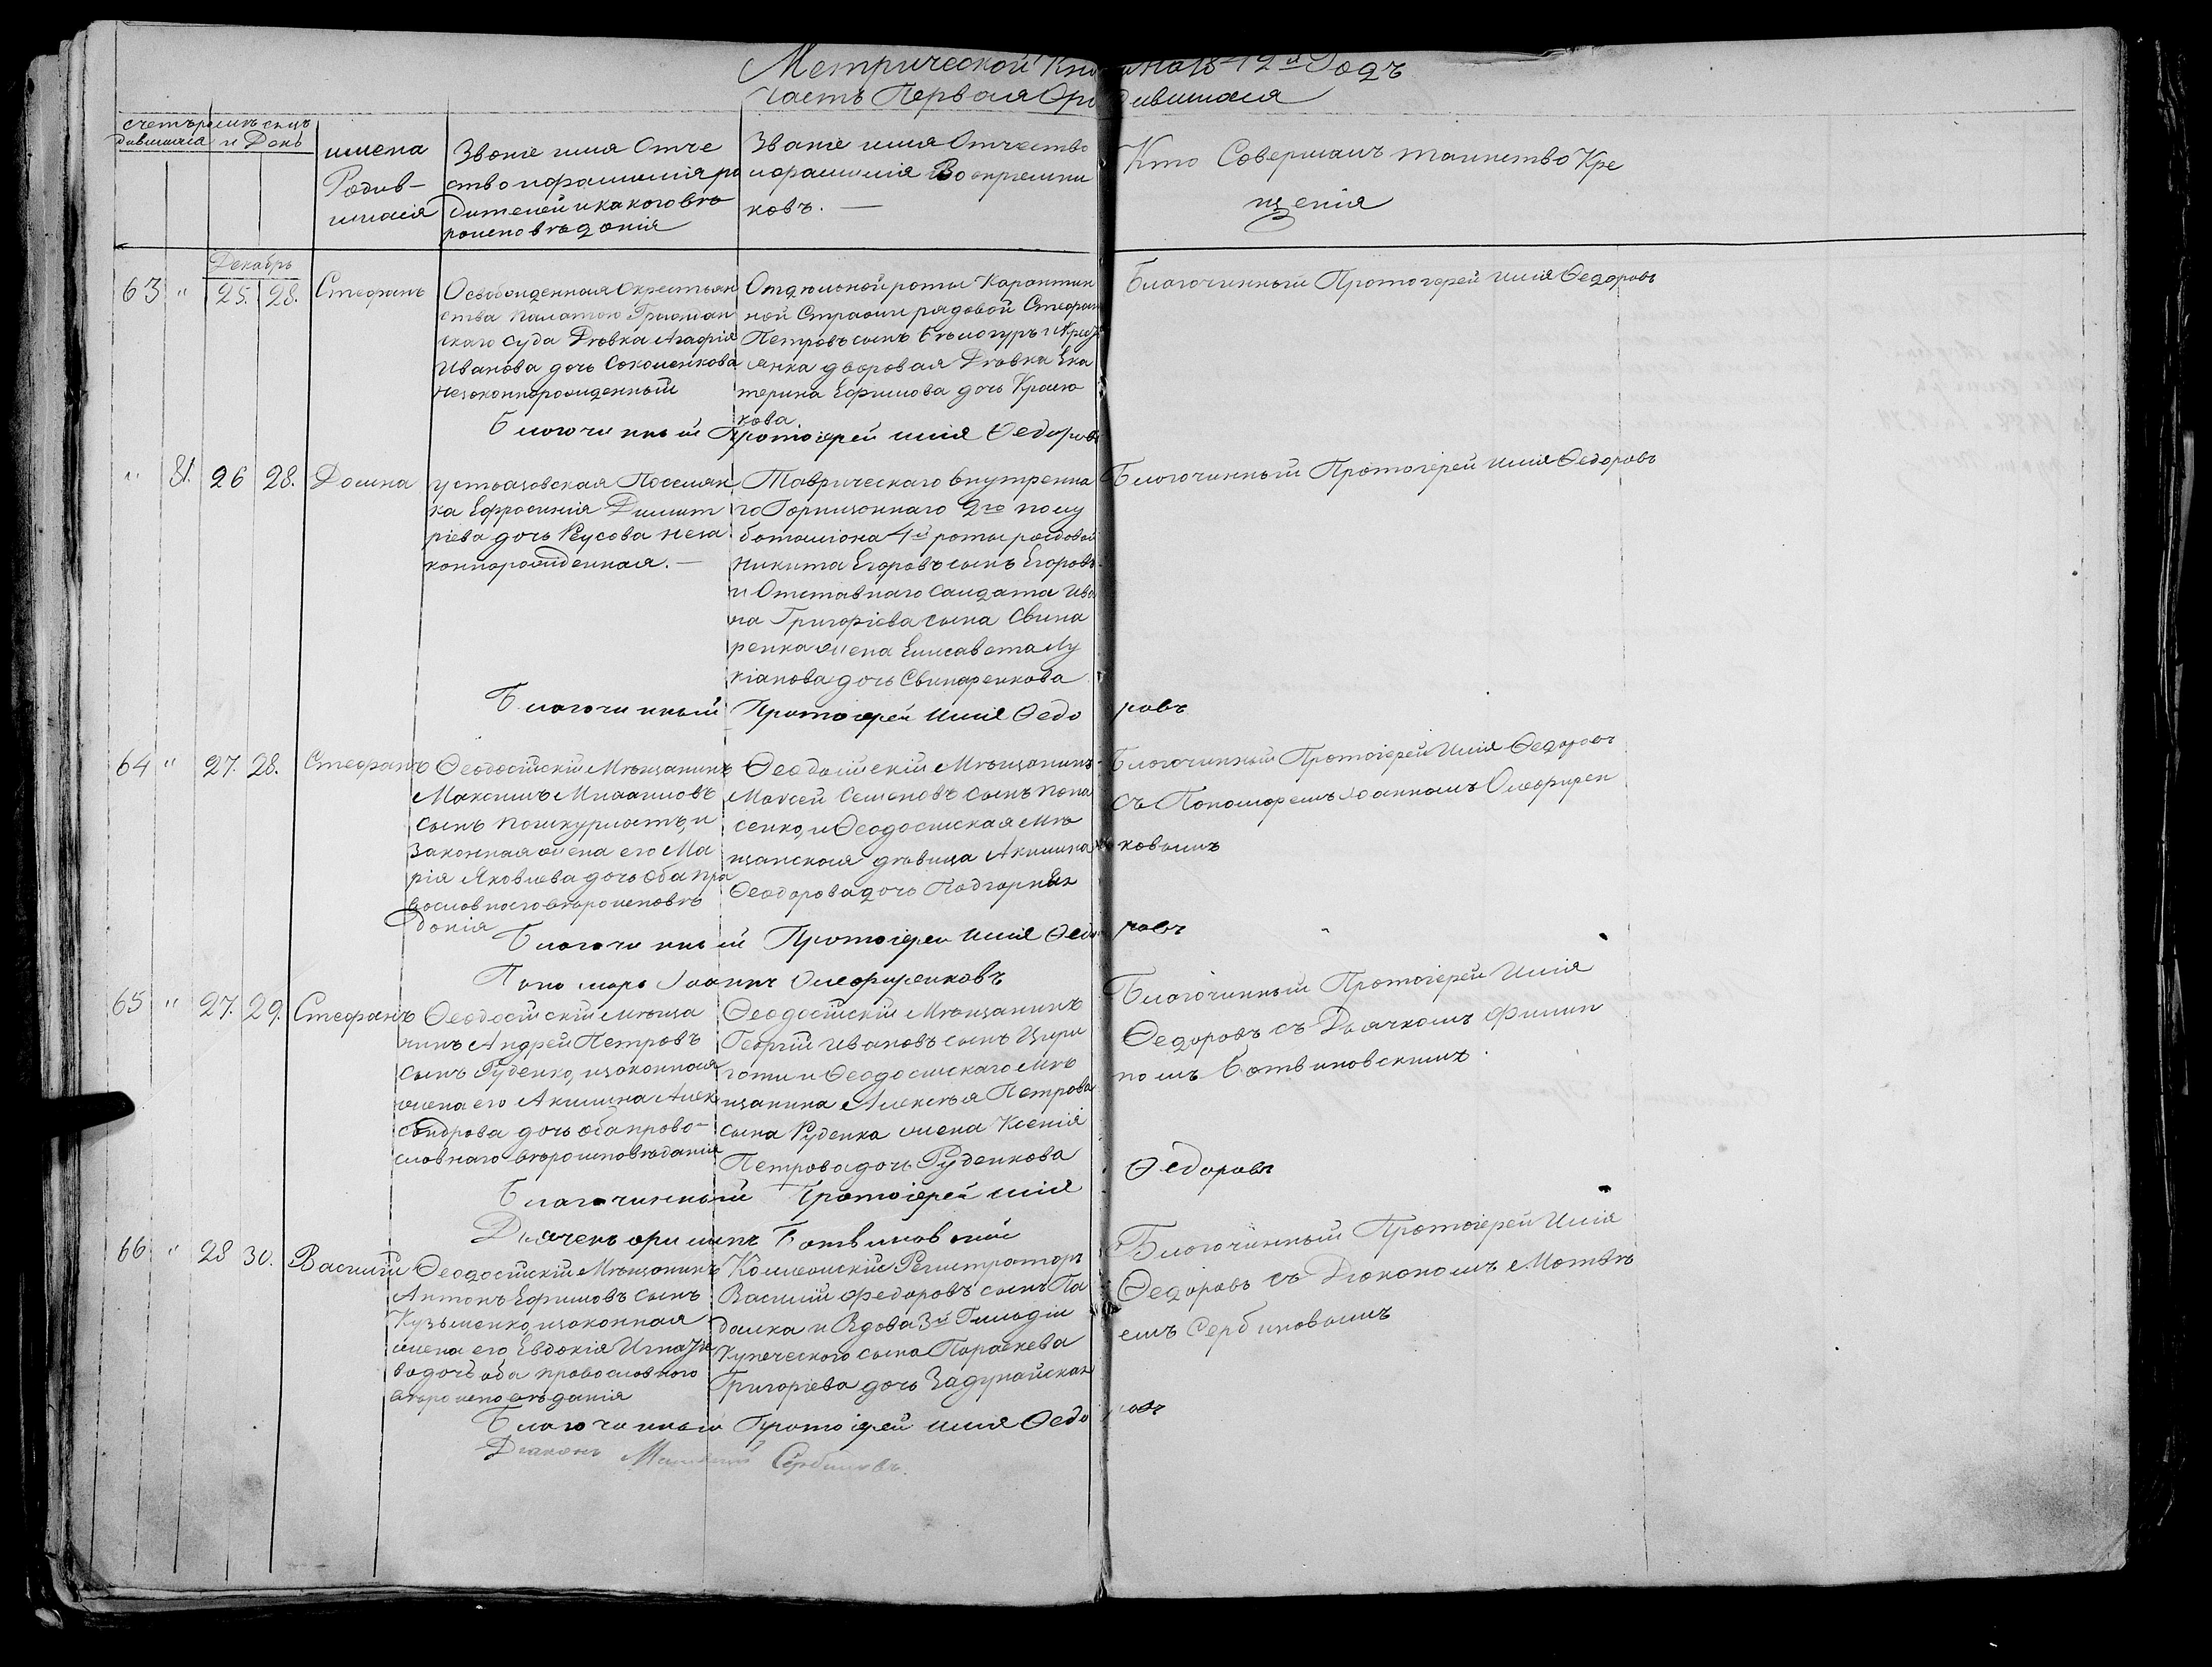 Метрической Кни на 1842й Годъ
Часть Первая О родившихся
счетъ родившихся
мѣсецъ и День
имена Родив-
шихся
Званіе имя Отче
ство и фамилія ро
дителей и какого вѣ
роисповѣданія
Званіе имя Отчество
и фамилія Воспріемни
ковъ. —
Кто Совершалъ таинство Кре
щенія
Декабрь
63 " 25. 28. Стефанъ
Освобожденная Окрестьян
ства палатою Граждан
скаго суда Дѣвка Агафія
Иванова дочь Соколенкова
незаконнорожденный
Отдѣльной роты Карантин
ной Стражи рядовой Стефан
Петровъ сынъ Бѣлогуръ и
янка дворовая Дѣвка Ека
терина Ефимова дочь
кова
Благочинный Протоіерей Илія Ѳедоровъ
Благочинный Протоіерей Илія Ѳедоровъ
" 31. 26 28. Домна
Поселян
ка Ефросинія Димит
ріева дочь Реусова неза
коннорожденная. —
Таврическаго внутренна
го Горнизоннаго 2го полу
баталіона 4й роты рядовой
Никита Егоровъ сынъ Егоровъ
и Отставнаго Салдата Ива
на Григоріева сына Свина
ренка жена Елисавета Лу
кіанова дочь Свинаренкова
Благочинный Протоіерей Илія Ѳедоровъ
Благочинный Протоіерей Илія Ѳедо ровъ
64 " 27. 28. Стефанъ
Ѳеодосійскій Мѣщанинъ
Максимъ Михаиловъ
сынъ Пошкурлатъ, и
Законная жена его Ма
рія Яковлева дочь оба пра
вославнаго вѣроисповѣ
данія
Ѳеодосійскій Мѣщанинъ
Моисей Семеновъ сынъ Пона
сенко, и Ѳеодосийская Мѣ
щанская дѣвица Акилина
Ѳеодорова дочь Подгорная
Благочинный Протоіерей Илія Ѳедоровъ
съ Пономаремъ Іоанномъ Олефирен
ковымъ
Благочинный Протоіерей Илія Ѳедо ровъ
Пономарь Іоаннъ Олефиренковъ
65 " 27. 29. Стефанъ
Ѳеодосійскій Мѣща
нинъ Андрей Петровъ
сынъ Руденко, и законная
жена его Акилина Алек
сандрова дочь оба право-
славнаго вѣроисповѣданія
Ѳеодосійскій Мѣщанинъ
Георгій Ивановъ сынъ Цури
готи и Ѳеодосийскаго Мѣ
щанина Алексѣя Петрова
сына Руденка жена Ксенія
Петрова дочь Руденкова
Благочинный Протоіерей Илія
Ѳедоровъ съ Дьячкомъ Филип
помъ Ботвиновскимъ.
Благочинный Протоіерей Илія Ѳедоровъ
Дьячекъ Филипъ Ботвиновскій
66 " 28 30. Василій
Ѳеодосійскій Мѣщанинъ
Антонъ Ефимовъ сынъ
Кузьменко, и законная
жена его Евдокія Игнатье
ва дочь оба православнаго
вѣроисповѣданія
Коллежскій Регистраторъ
Василій Федоровъ сынъ Па
далка и Вдова 3й Гильдіи
Купеческого сына Параскева
Григоріева дочь Задунайская
Благочинный Протоіерей Илія
Ѳедоровъ съ Діакономъ Матвѣ
емъ Сербиновымъ
Благочинный Протоіерей Илія Ѳедо ровъ
Діаконъ Матвей Сербиновъ.